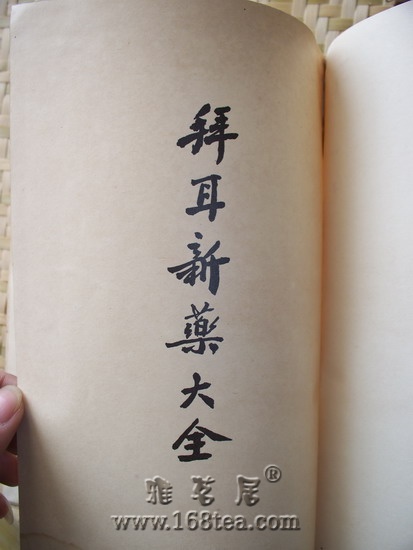 拜耳新藥大全
雅茗居®
www.168tea.com